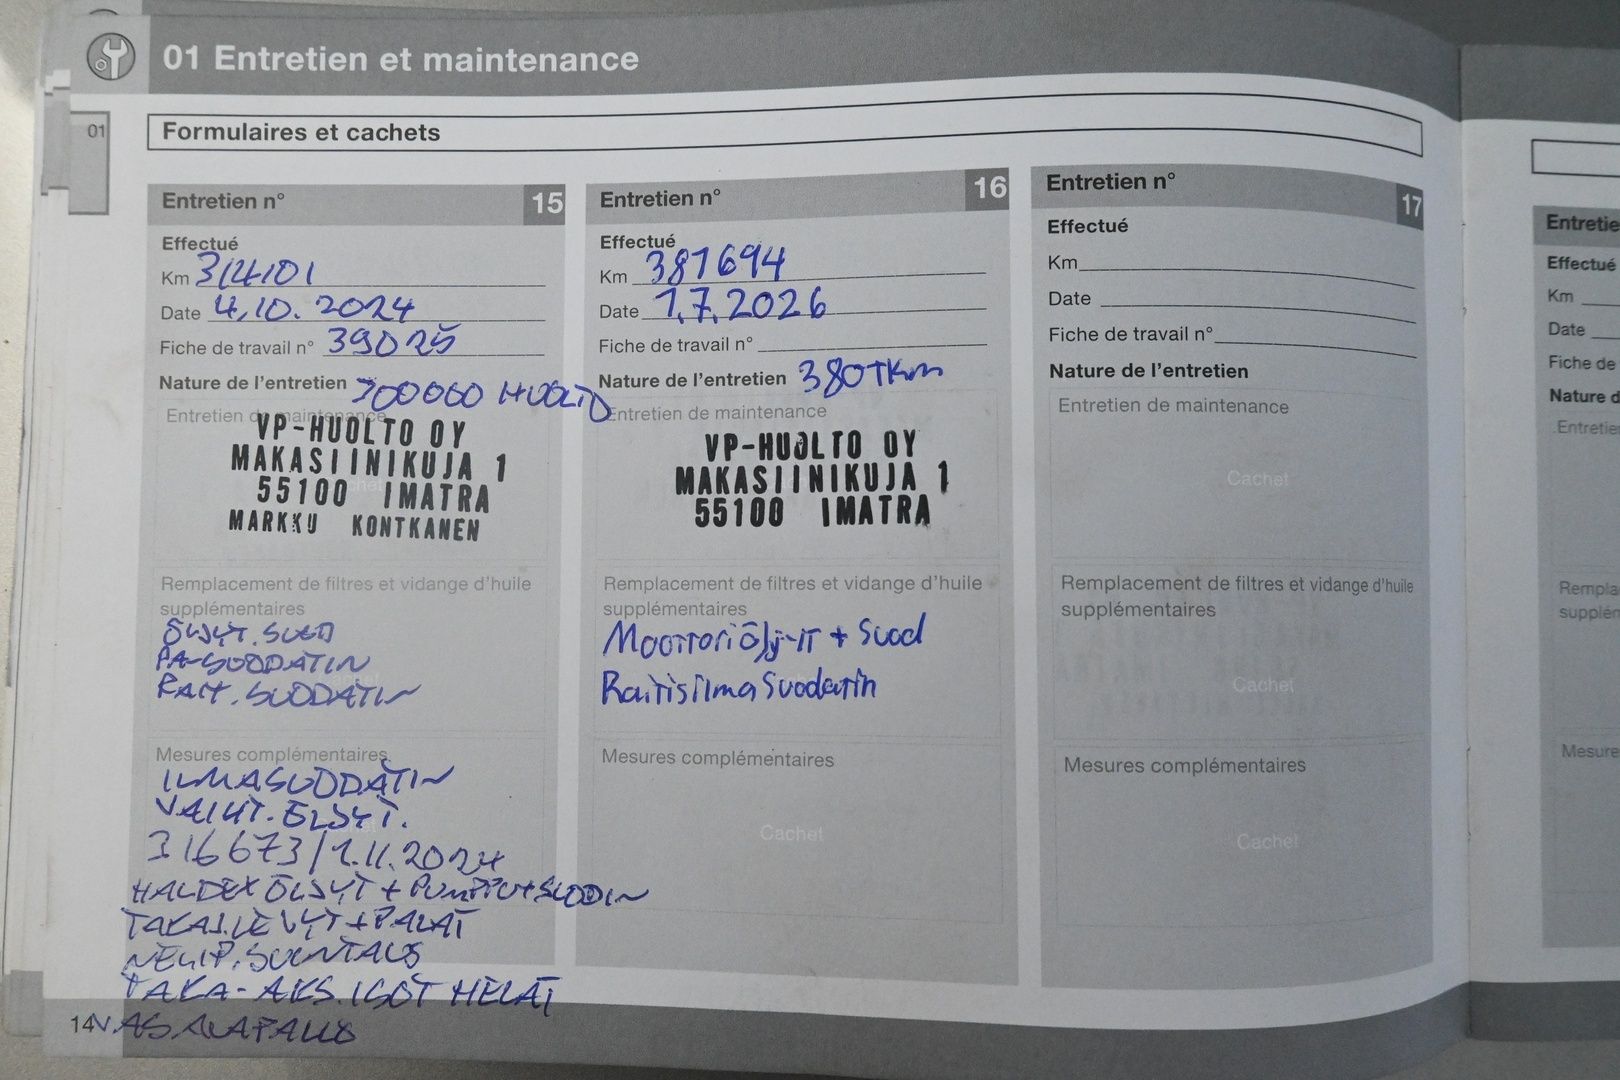 01 Entretien et maintenance
01
Formulaires et cachets
Entretien n° 15
Effectué
Km 314101
Date 4.10.2024
Fiche de travail n° 39025
Nature de l'entretien 300000 HUOLTO
Entretien de maintenance
VP-HUOLTO OY
MAKASIINIKUJA 1
55100 IMATRA
MARKKU KONTKANEN
Remplacement de filtres et vidange d'huile
supplémentaires
ÖLJYT. SUOD
PA-SUODATIN
RAIT. SUODATIN
Mesures complémentaires
ILMASUODATIN
VAIHT. ÖLJYT.
316673/1.11.2024
HALDEX ÖLJYT + PUMPPU + SUODIN
TAKAJ.LEVYT + PALAT
NELIP. SUUNTAUS
TAKA-AKS. ISOT HELAT
VAS. ALAPALLO
14
Entretien n° 16
Effectué
Km 381694
Date 1.7.2026
Fiche de travail n°
Nature de l'entretien 380TKm
Entretien de maintenance
VP-HUOLTO OY
MAKASIINIKUJA 1
55100 IMATRA
Remplacement de filtres et vidange d'huile
supplémentaires
Moottoriöljyt + Suod
Raitisilma Suodatin
Mesures complémentaires
Cachet
Entretien n° 17
Effectué
Km
Date
Fiche de travail n°
Nature de l'entretien
Entretien de maintenance
Cachet
Remplacement de filtres et vidange d'huile
supplémentaires
Cachet
Mesures complémentaires
Cachet
Effectué
Km
Date
Fiche de